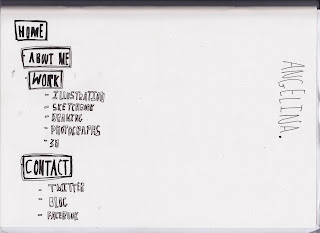 HOME
- ABOUT ME
- WORK
- ILLUSTRATION
- SKETCHBOOK
- DRAWING
- PHOTOGRAPHS
- 3D
CONTACT
- TWITTER
- BLOG
- FACEBOOK
ANGELINA.